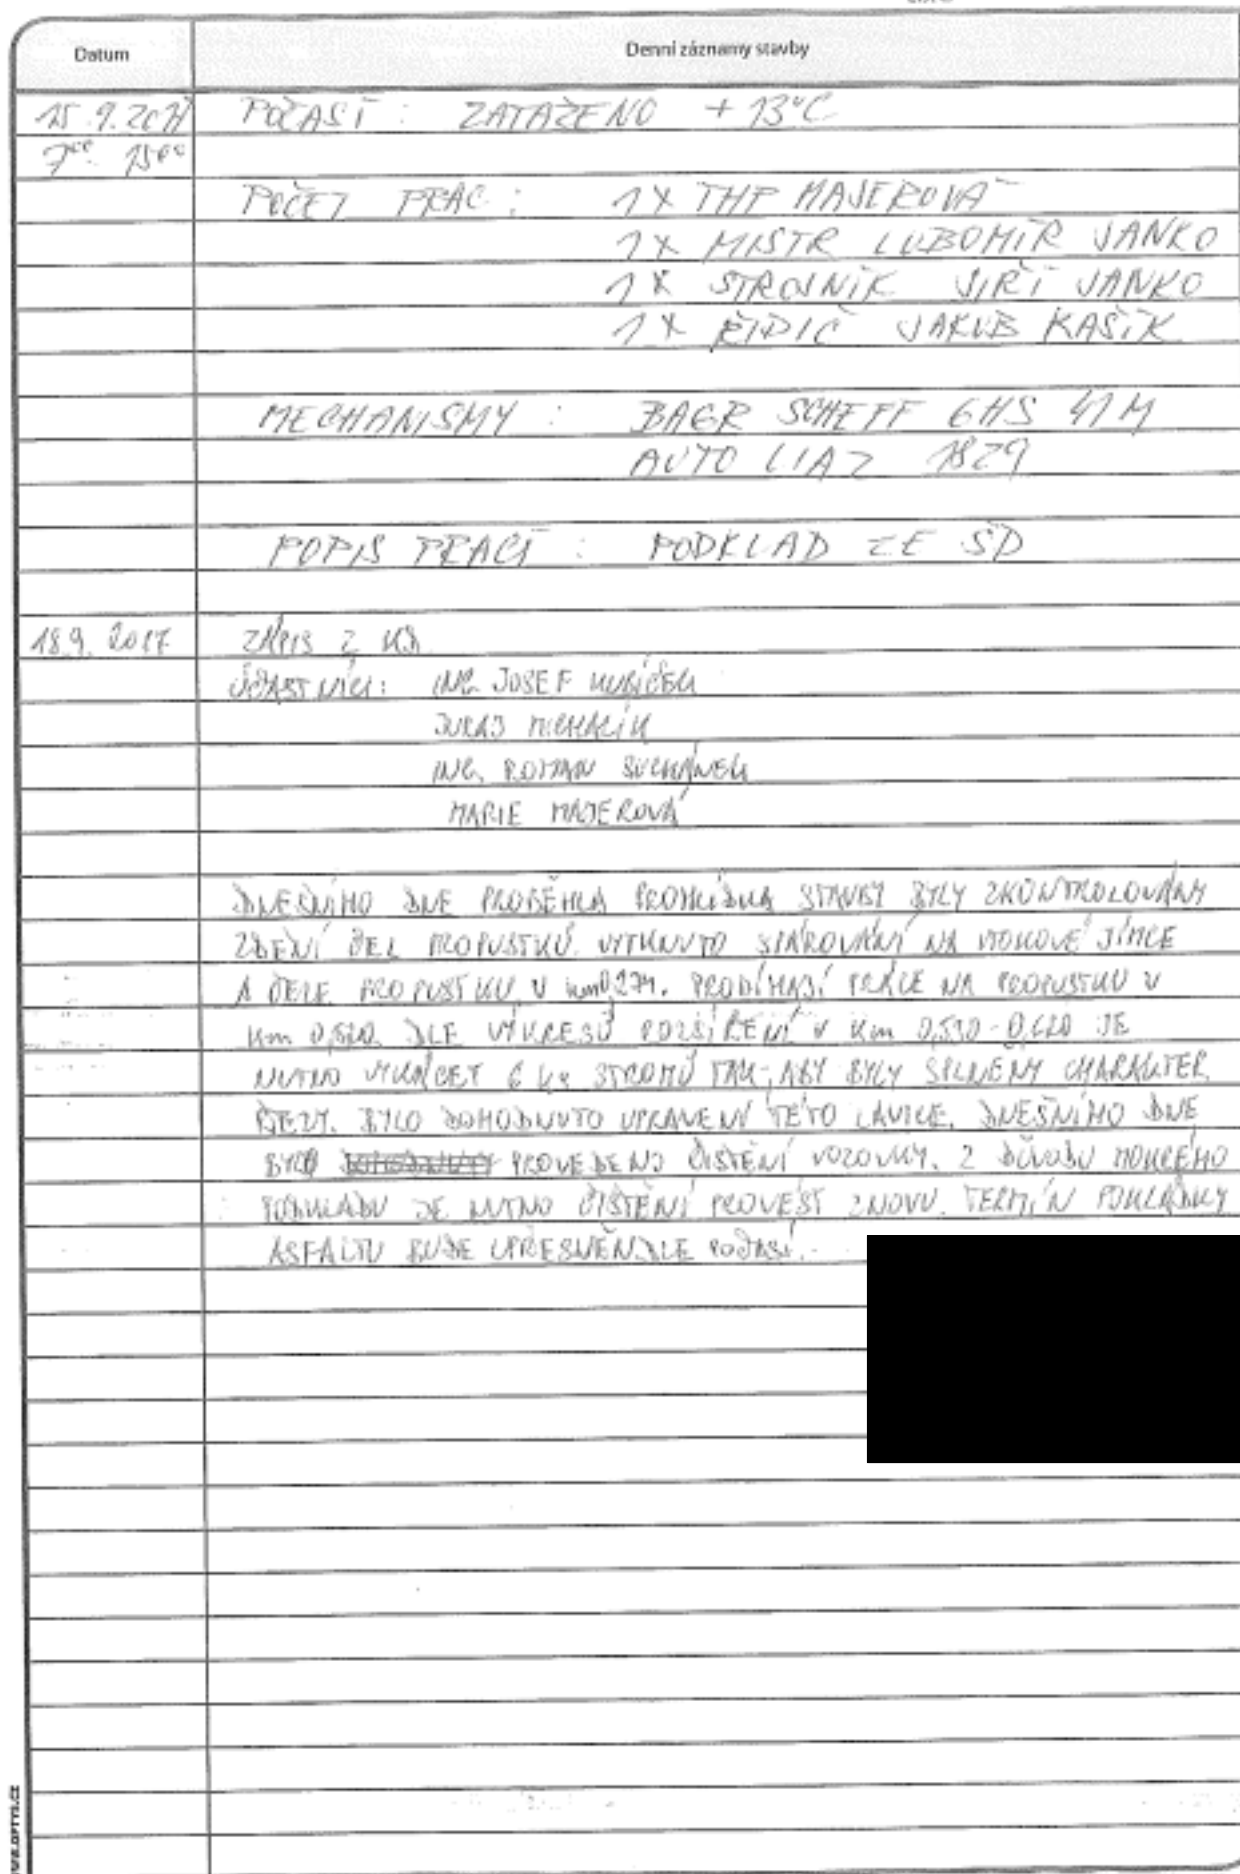 Datum Denní záznamy stavby
15.9.2017 POČASÍ: ZATAŽENO +13°C
7°° 15°°
POČET PRAC: 1X THP MAJEROVÁ
1X MISTR LUBOMÍR JANKO
1X STROJNÍK JIŘÍ JANKO
1X ŘIDIČ JAKUB KAŠÍK
MECHANISMY: BAGR SCHEFF 6HS 41M
AUTO LIAZ 1829
POPIS PRACÍ: PODKLAD ZE ŠD
18.9. 2017 ZÁPIS Z KD
ÚČASTNÍCI: ING. JOSEF KUBÍČEK
JURAJ MICHALÍK
ING. ROMAN SUCHÁNEK
MARIE MAJEROVÁ
DNEŠNÍHO DNE PROBĚHLA PROHLÍDKA STAVBY BYLY ZKONTROLOVÁNY
ZDĚNÍ ČEL PROPUSTKŮ. VYTKNUTO SPÁROVÁNÍ NA VTOKOVÉ JÍMCE
A ČELE PROPUSTKU V km 0,274. PROBÍHAJÍ PRÁCE NA PROPUSTKU V
km DLE VÝKRESŮ ROZŠÍŘENÍ V km 0,530-0,620 JE
NUTNO VYKÁCET 6 ks STROMŮ TAK, ABY BYLY SPLNĚNY CHARAKTER.
ŘEZY. BYLO DOHODNUTO UPRAVENÍ TÉTO LAVICE. DNEŠNÍHO DNE
BYLO PROVEDENO ČIŠTĚNÍ VOZOVKY. Z DŮVODU MOKRÉHO
PODKLADU JE NUTNO ČIŠTĚNÍ PROVÉST ZNOVU. TERMÍN POKLÁDKY
ASFALTU BUDE UPŘESNĚN DLE POČASÍ.